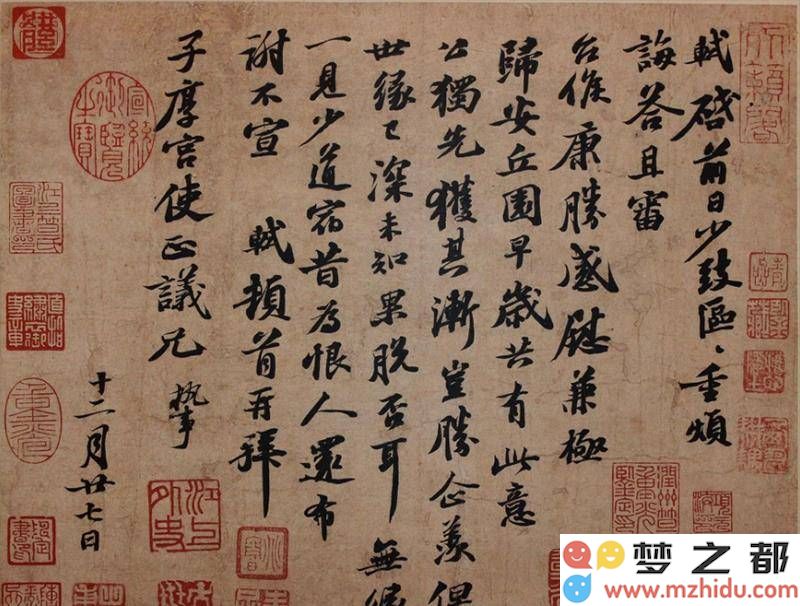 軾啓前日少致區〻重煩
誨答且審
台候康勝感慰兼極
歸安丘園早歲共有此意
公獨先獲其漸豈勝企羨但
世緣已深未知果脫否耳無緣
一見少道宿昔為恨人還布
謝不宣 軾頓首再拜
子厚宮使正議兄 執事
十二月廿七日
天籟閣
宣統御覽之寶
江上外史
梦之都
www.mzhidu.com